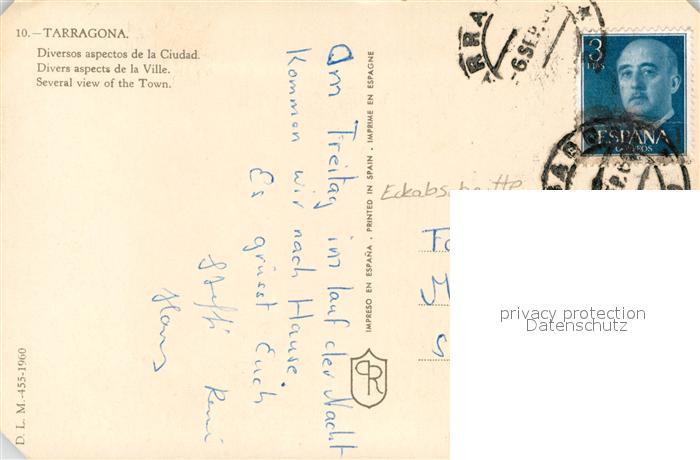 10.—TARRAGONA.
Diversos aspectos de la Ciudad.
Divers aspects de la Ville.
Several view of the Town.
D. L. M.-455-1960
Am Freitag im lauf der Nacht
kommen wir nach Hause.
Es grüsst Euch
Steffi René
Hans
IMPRESO EN ESPAÑA - PRINTED IN SPAIN - IMPRIME EN ESPAGNE
6 SEP.
3
PTS
ESPAÑA
CORREOS
privacy protection
Datenschutz